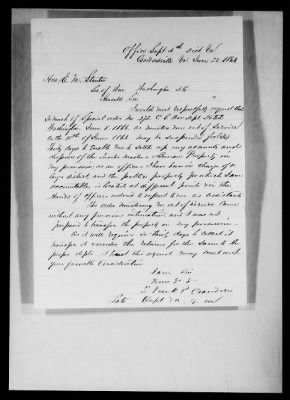 Office Supt 4th Dist Va
Gordonsville Va June 22 1866
Hon E. M. Stanton
Sec of War Washington D.C.
Sir
I would most respectfully request that
so much of Special order No 272 War Dept
Washington June 8 1866 as musters me out of service
on the 10th of June 1866 may be suspended for
thirty days to enable me to settle up my accounts and
dispose of the Property in
my possession as an officer I have been in charge of a
large district and the public property for which I am
accountable is located at different points in the
hands of officers ordered to report to me as assistants
The order mustering me out of service came
without any previous intimation and I was not
prepared to transfer the property in my possession
As it will require thirty days to collect it
transfer it render the returns for the same to the
proper depts. I trust this request may meet with
your favorable consideration
I am Sir
Yours
Frank P. Crandon
Late Capt